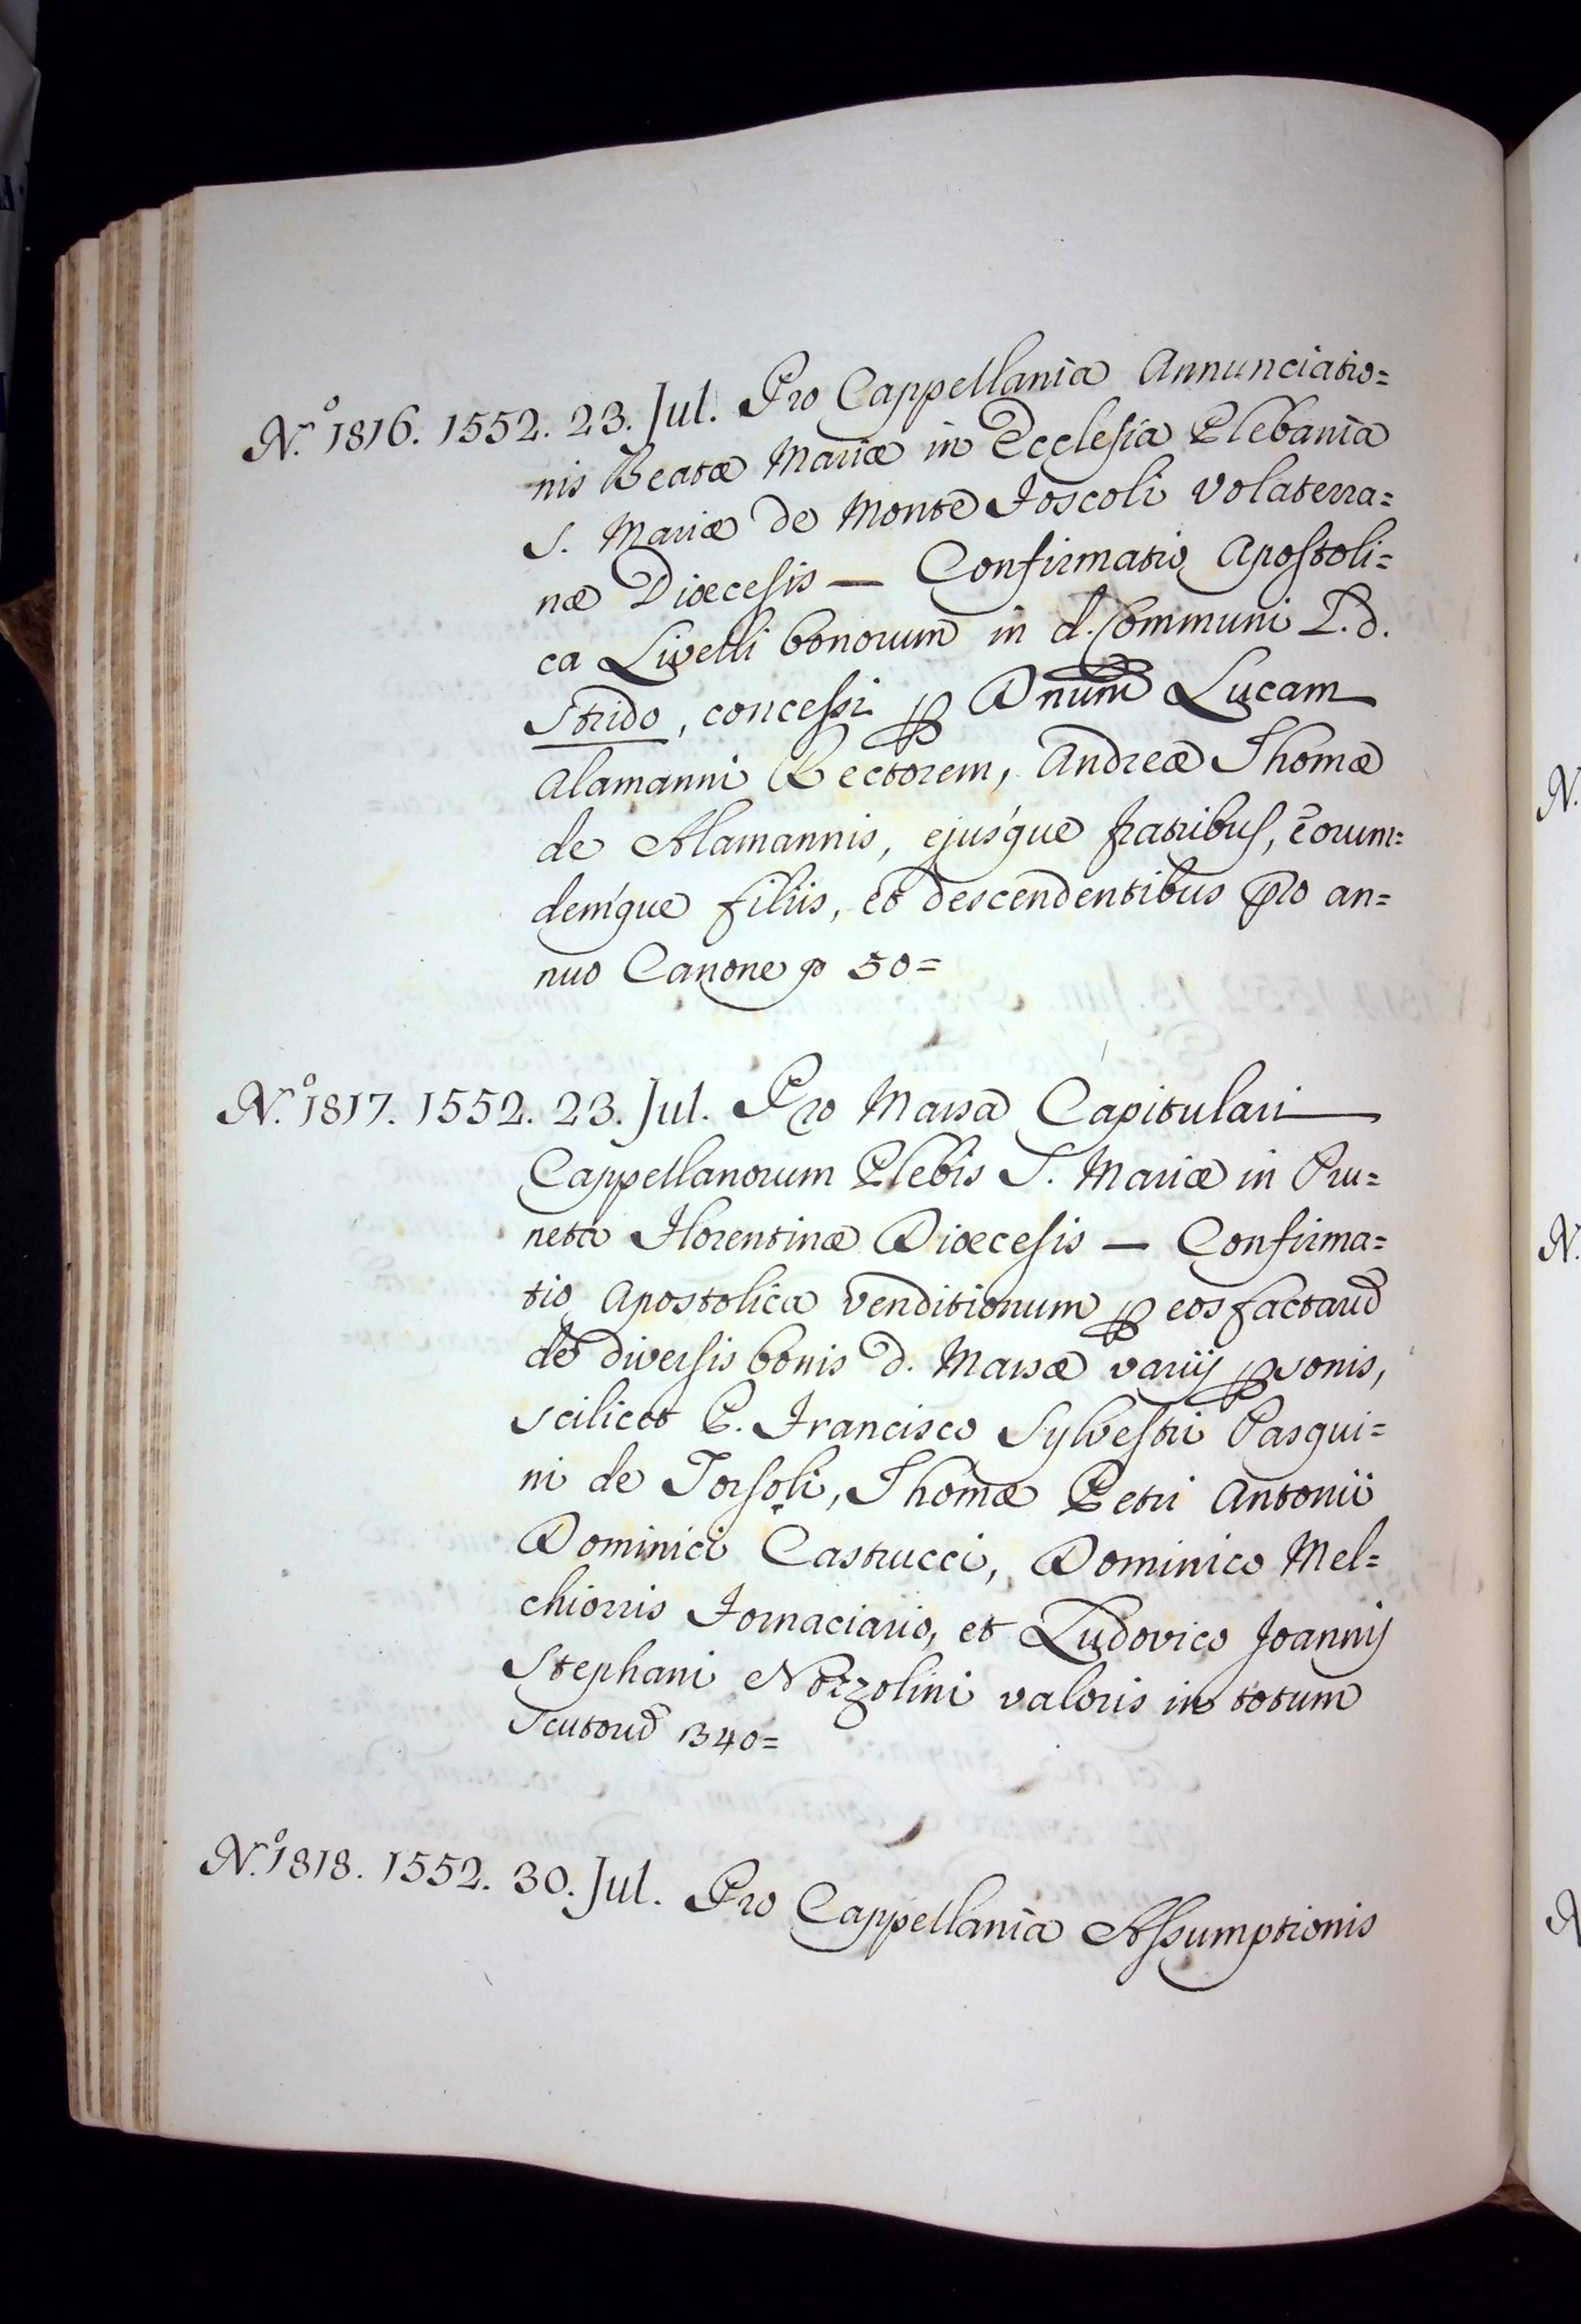 N.º 1816. 1552. 23. Jul. Pro Cappellania Annunciatio=
nis Beatæ Mariæ in Ecclesia Plebania
S. Mariæ de Monte Foscoli Volaterra=
næ Diœcesis — Confirmatio Apostoli=
ca Livelli bonorum in d. Communi L. d.
Strido, concessi ꝑ Dnum̃ Lucam
Alamanni Rectorem, Andreæ Thomæ
de Alamannis, ejusque fratribus, eorum=
demque filiis, et descendentibus pro an=
nuo Canone 50=
N.º 1817. 1552. 23. Jul. Pro Massa Capitulari
Cappellanorum Plebis S. Mariæ in Pru=
neta Florentinæ Diœcesis — Confirma=
tio Apostolica venditionum ꝑ eos factarũ
de diversis bonis d. Massæ variis ꝑsonis,
scilicet P. Francisco Sylvestri Pasqui=
ni de Torsoli, Thomæ Petri Antonii
Dominici Castrucci, Dominico Mel=
chiorris Fornaciario, et Ludovico Joannis
Stephani Nozzolini valoris in totum
Scutorũ 1340=
N.º 1818. 1552. 30. Jul. Pro Cappellania Assumptionis
N.
N.
N